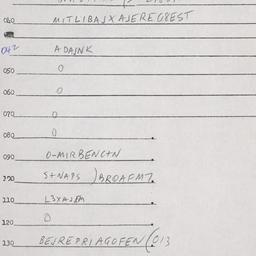 040 MITLIBAJX AJEREQBEST
042 A DAJNK
050 0
060 0
070 0
080 0
090 0-MIRBENC+N
100 S+NAPS )BROAFMT
110 L3XAJEM
120 0
130 BEJREPRIAGOFEN(013